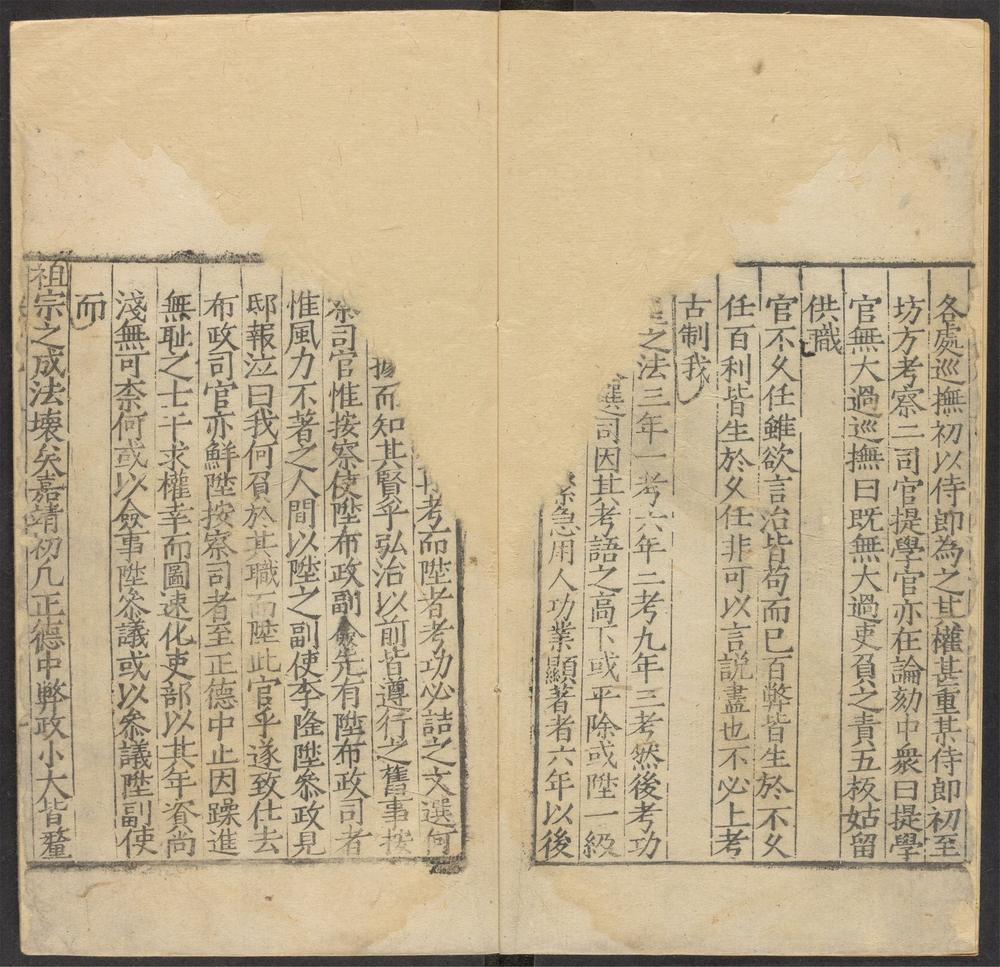 各處巡撫初以侍郎為之其權甚重某侍郎初至
坊方考察二司官提學官亦在論劾中衆曰提學
官無大過巡撫曰既無大過吏負之責五板姑留
供職
官不乆任雖欲言治皆苟而已百弊皆生於不乆
任百利皆生於乆任非可以言説盡也不必上考
古制我
之法三年一考六年二考九年三考然後考功
選司因其考語之高下或平除或陞一級
緊急用人功業顯著者六年以後
考而陞者考功必詰之文選何
據而知其賢乎弘治以前皆遵行之舊事按
察司官惟按察使陞布政副僉先有陞布政司者
惟風力不著之人間以陞之副使李隆陞參政見
邸報泣曰我何負於其職而陞此官乎遂致仕去
布政司官亦鮮陞按察司者至正德中止因躁進
無耻之士干求權幸而圖速化吏部以其年資尚
淺無可柰何或以僉事陞參議或以參議陞副使
而
祖宗之成法壞矣嘉靖初凡正德中弊政小大皆釐